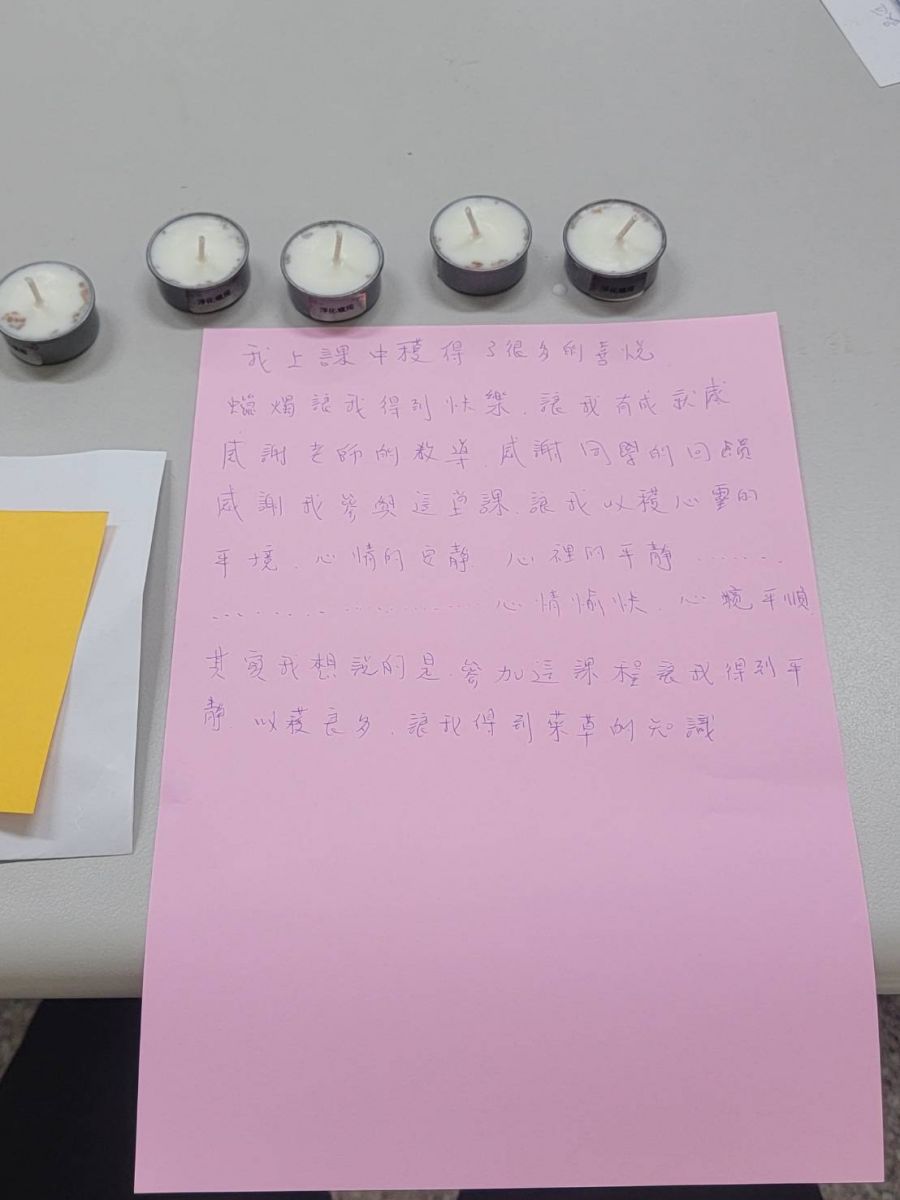 淨化蠟燭
淨化蠟燭
淨化蠟燭
我上課中穫得了很多的喜悅
蠟燭讓我得到快樂.讓我有成就感
感謝老師的教導.感謝同學的回饋
感謝我參與這堂課.讓我以穫心靈的
平境.心情的安靜 心裡的平靜 .......
..................... 心情愉快.心境平順
其實我想說的是.參加這課程讓我得到平
靜 以穫良多.讓我得到菜草的知識